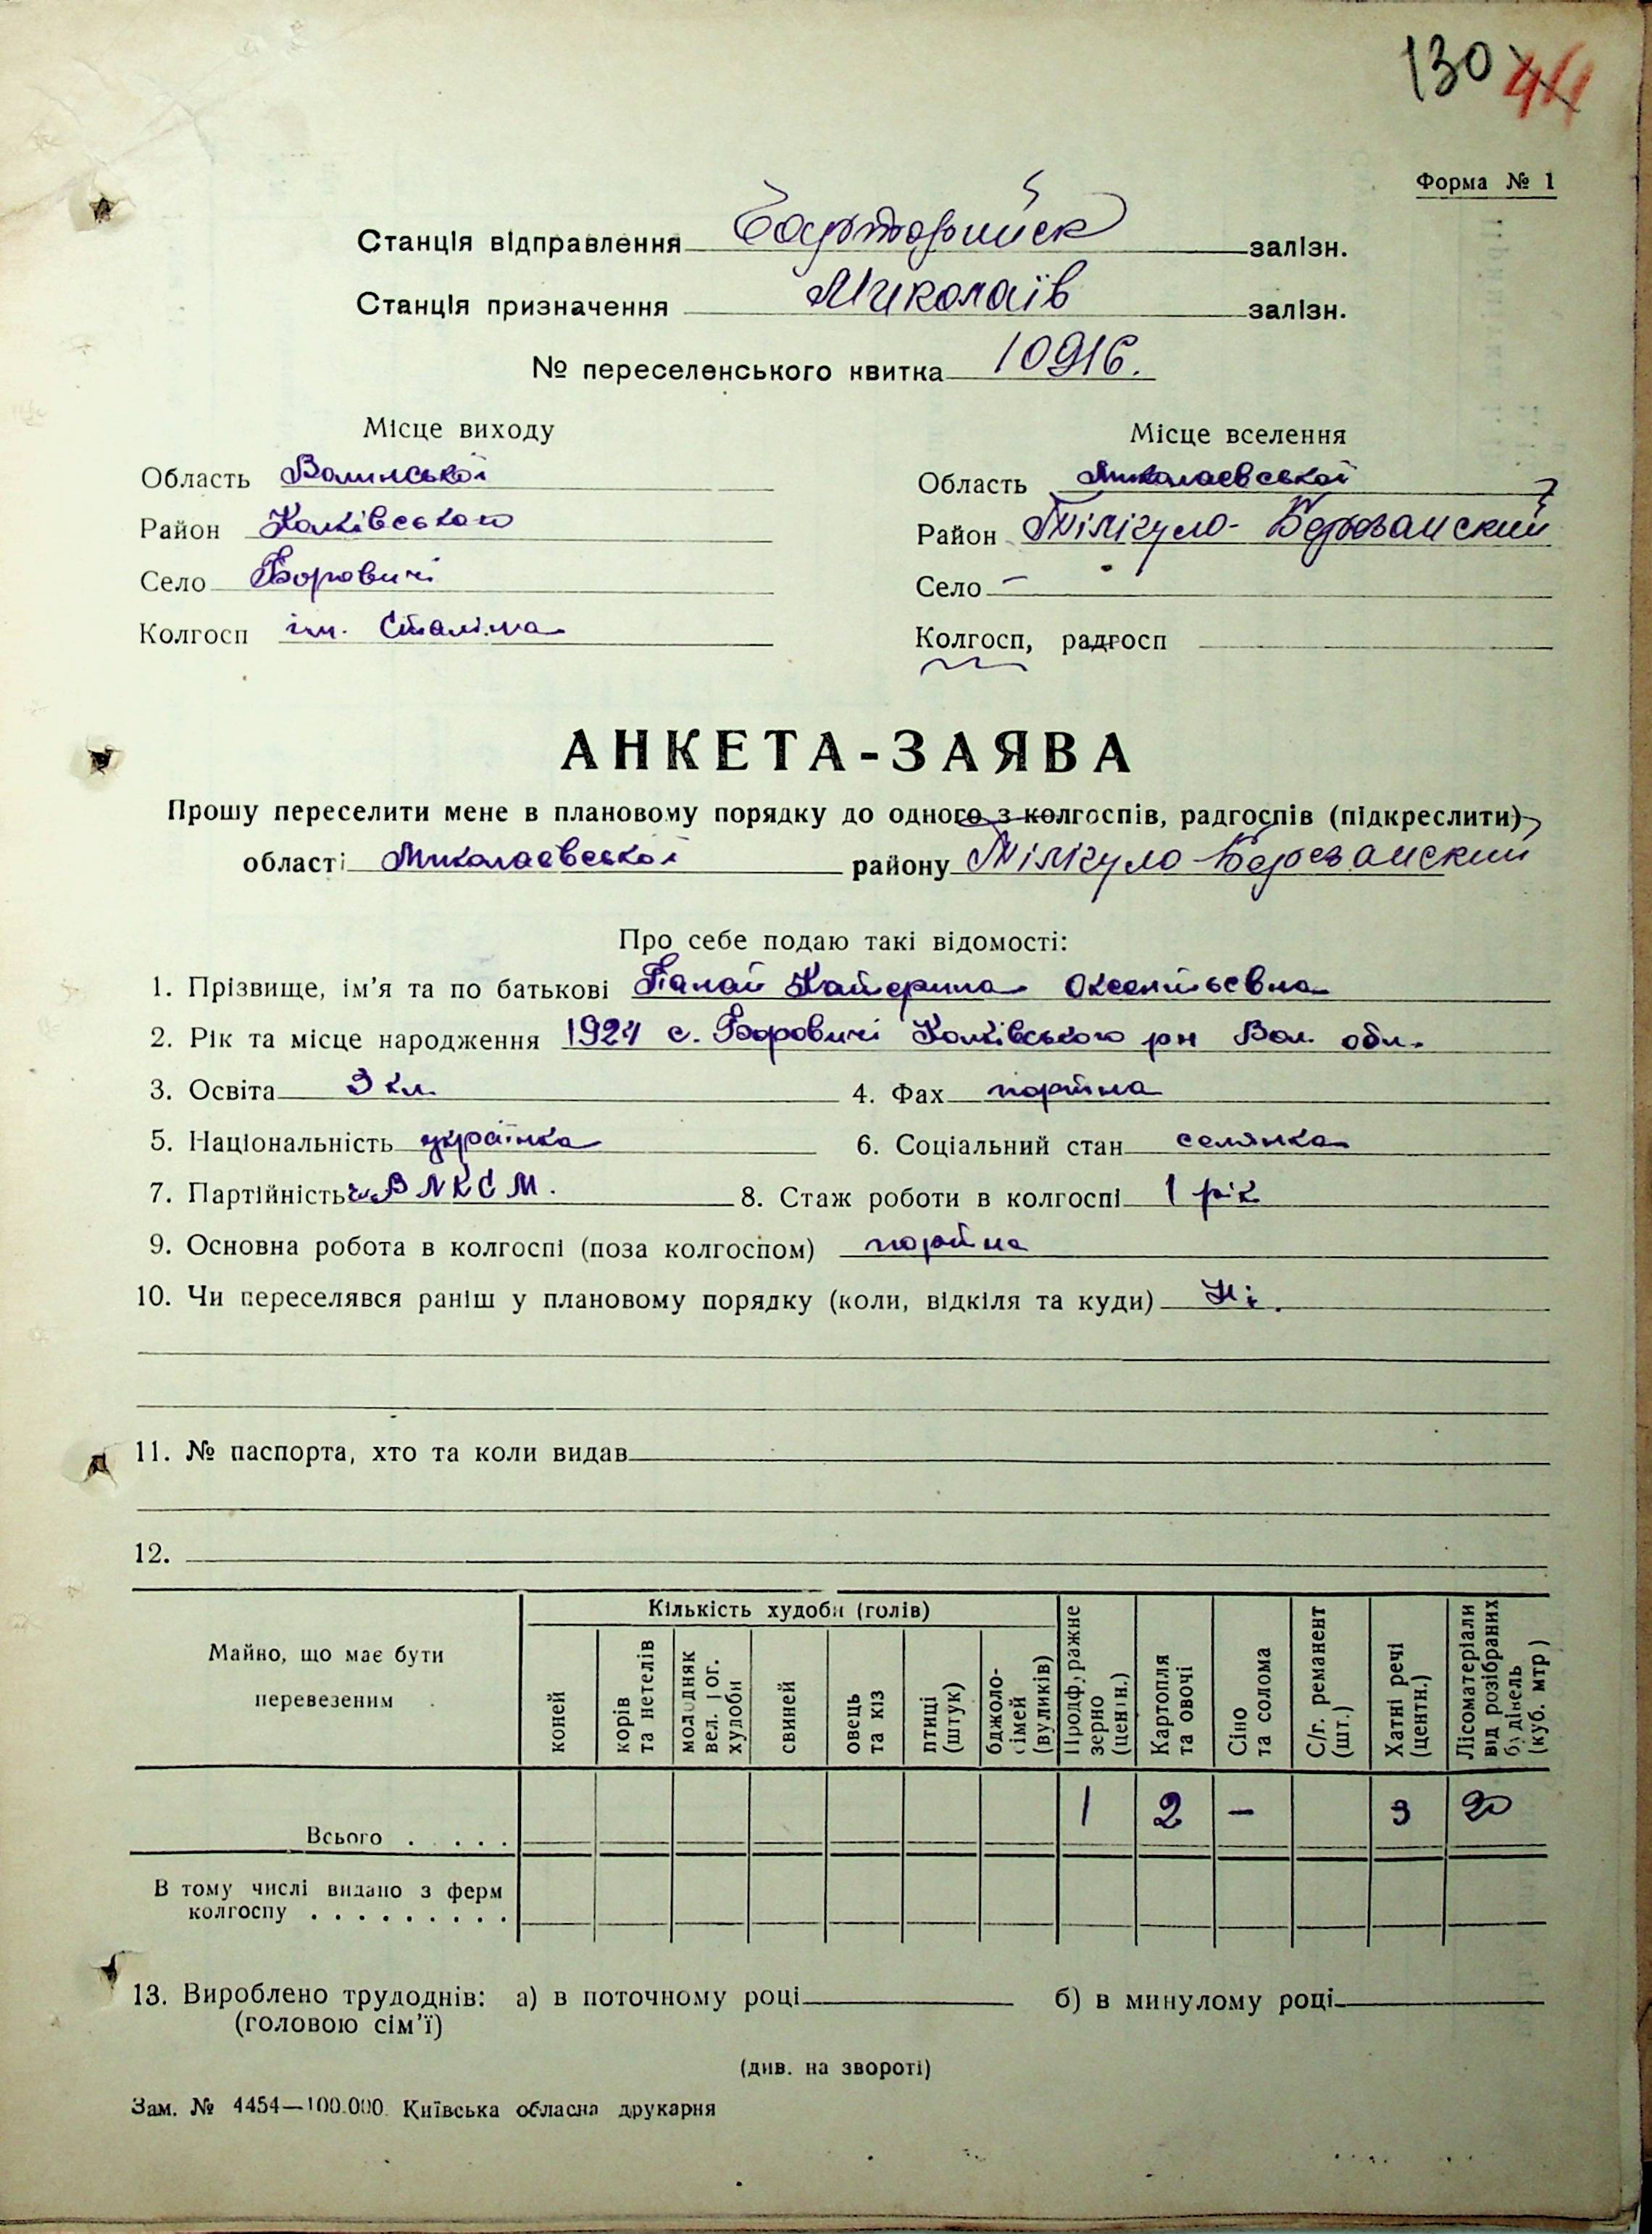 130 44
Форма № 1
Станція відправлення Чарторийск залізн.
Станція призначення Миколаїв залізн.
№ переселенського квитка 10916.
Місце виходу Місце вселення
Область Волинської Область Миколаевської
Район Колківського Район Тілігуло-Березанский
Село Боровичі Село -
Колгосп ім. Сталіна Колгосп, радгосп
АНКЕТА-ЗАЯВА
Прошу переселити мене в плановому порядку до одного з колгоспів, радгоспів (підкреслити)
області Миколаевської району Тілігуло-Березанский
Про себе подаю такі відомості:
1. Прізвище, ім'я та по батькові Катерина
2. Рік та місце народження 1924 с. Боровичі Колківського рн Вол. обл.
3. Освіта 3 кл. 4. Фах портна
5. Національність українка 6. Соціальний стан селянка
7. Партійність чл. ВЛКСМ. 8. Стаж роботи в колгоспі 1 рік
9. Основна робота в колгоспі (поза колгоспом) портна
10. Чи переселявся раніш у плановому порядку (коли, відкіля та куди) Ні.
11. № паспорта, хто та коли видав
12.
Майно, що має бути перевезеним
Кількість худоби (голів)
коней
корів та нетелів
молодняк вел. рог. худоби
свиней
овець та кіз
птиці (штук)
бджолосімей (вуликів)
Продфуражне зерно (центн.)
Картопля та овочі
Сіно та солома
С/г. реманент (шт.)
Хатні речі (центн.)
Лісоматеріали від розібраних будівель (куб. мтр)
Всього . . . . 1 2 - 3 20
В тому числі видано з ферм
колгоспу . . . . . . . . .
13. Вироблено трудоднів: а) в поточному році б) в минулому році
(головою сім'ї)
(див. на звороті)
Зам. № 4454—100.000. Київська обласна друкарня